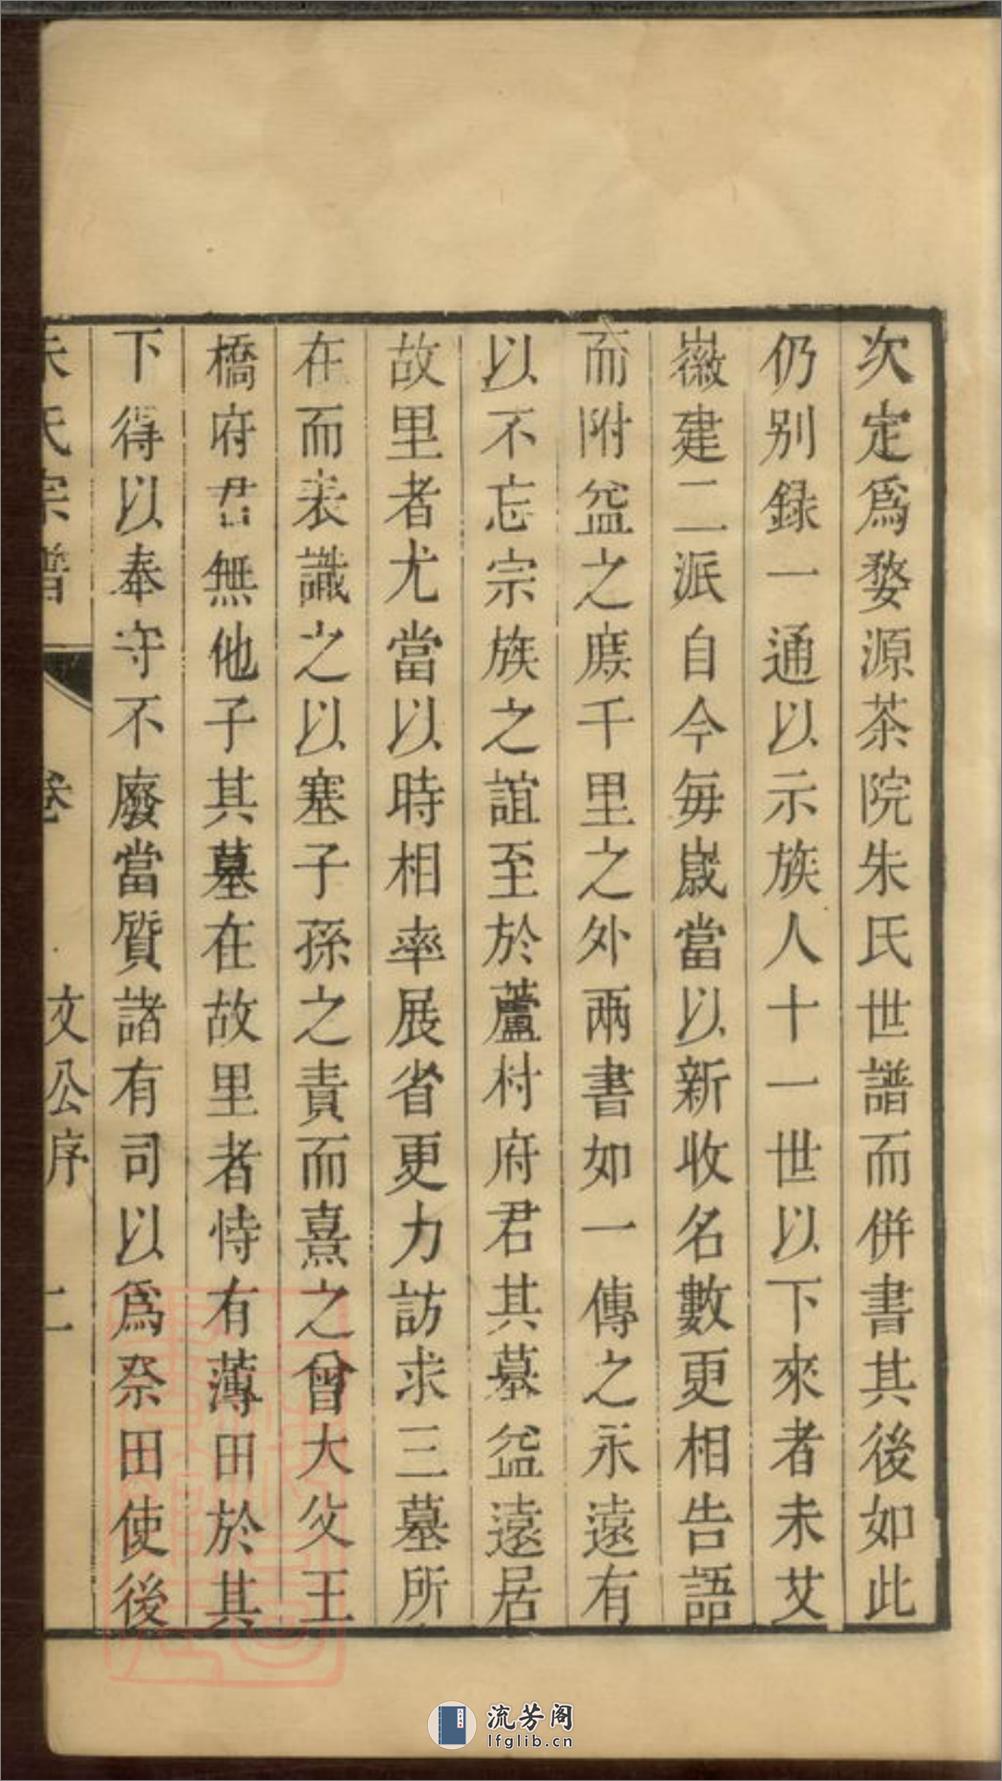 次定爲婺源茶院朱氏世譜而併書其後如此
仍別録一通以示族人十一世以下來者未艾
徽建二派自今每歲當以新收名數更相告語
而附益之庻千里之外兩書如一傳之永遠有
以不忘宗族之誼至於蘆村府君其墓益遠居
故里者尤當以時相率展省更力訪求三墓所
在而表識之以塞子孫之責而熹之曾大父王
橋府君無他子其墓在故里者恃有薄田於其
下得以奉守不廢當質諸有司以爲祭田使後
朱氏宗譜 卷 文公序 二
流芳阁
lfglib.cn